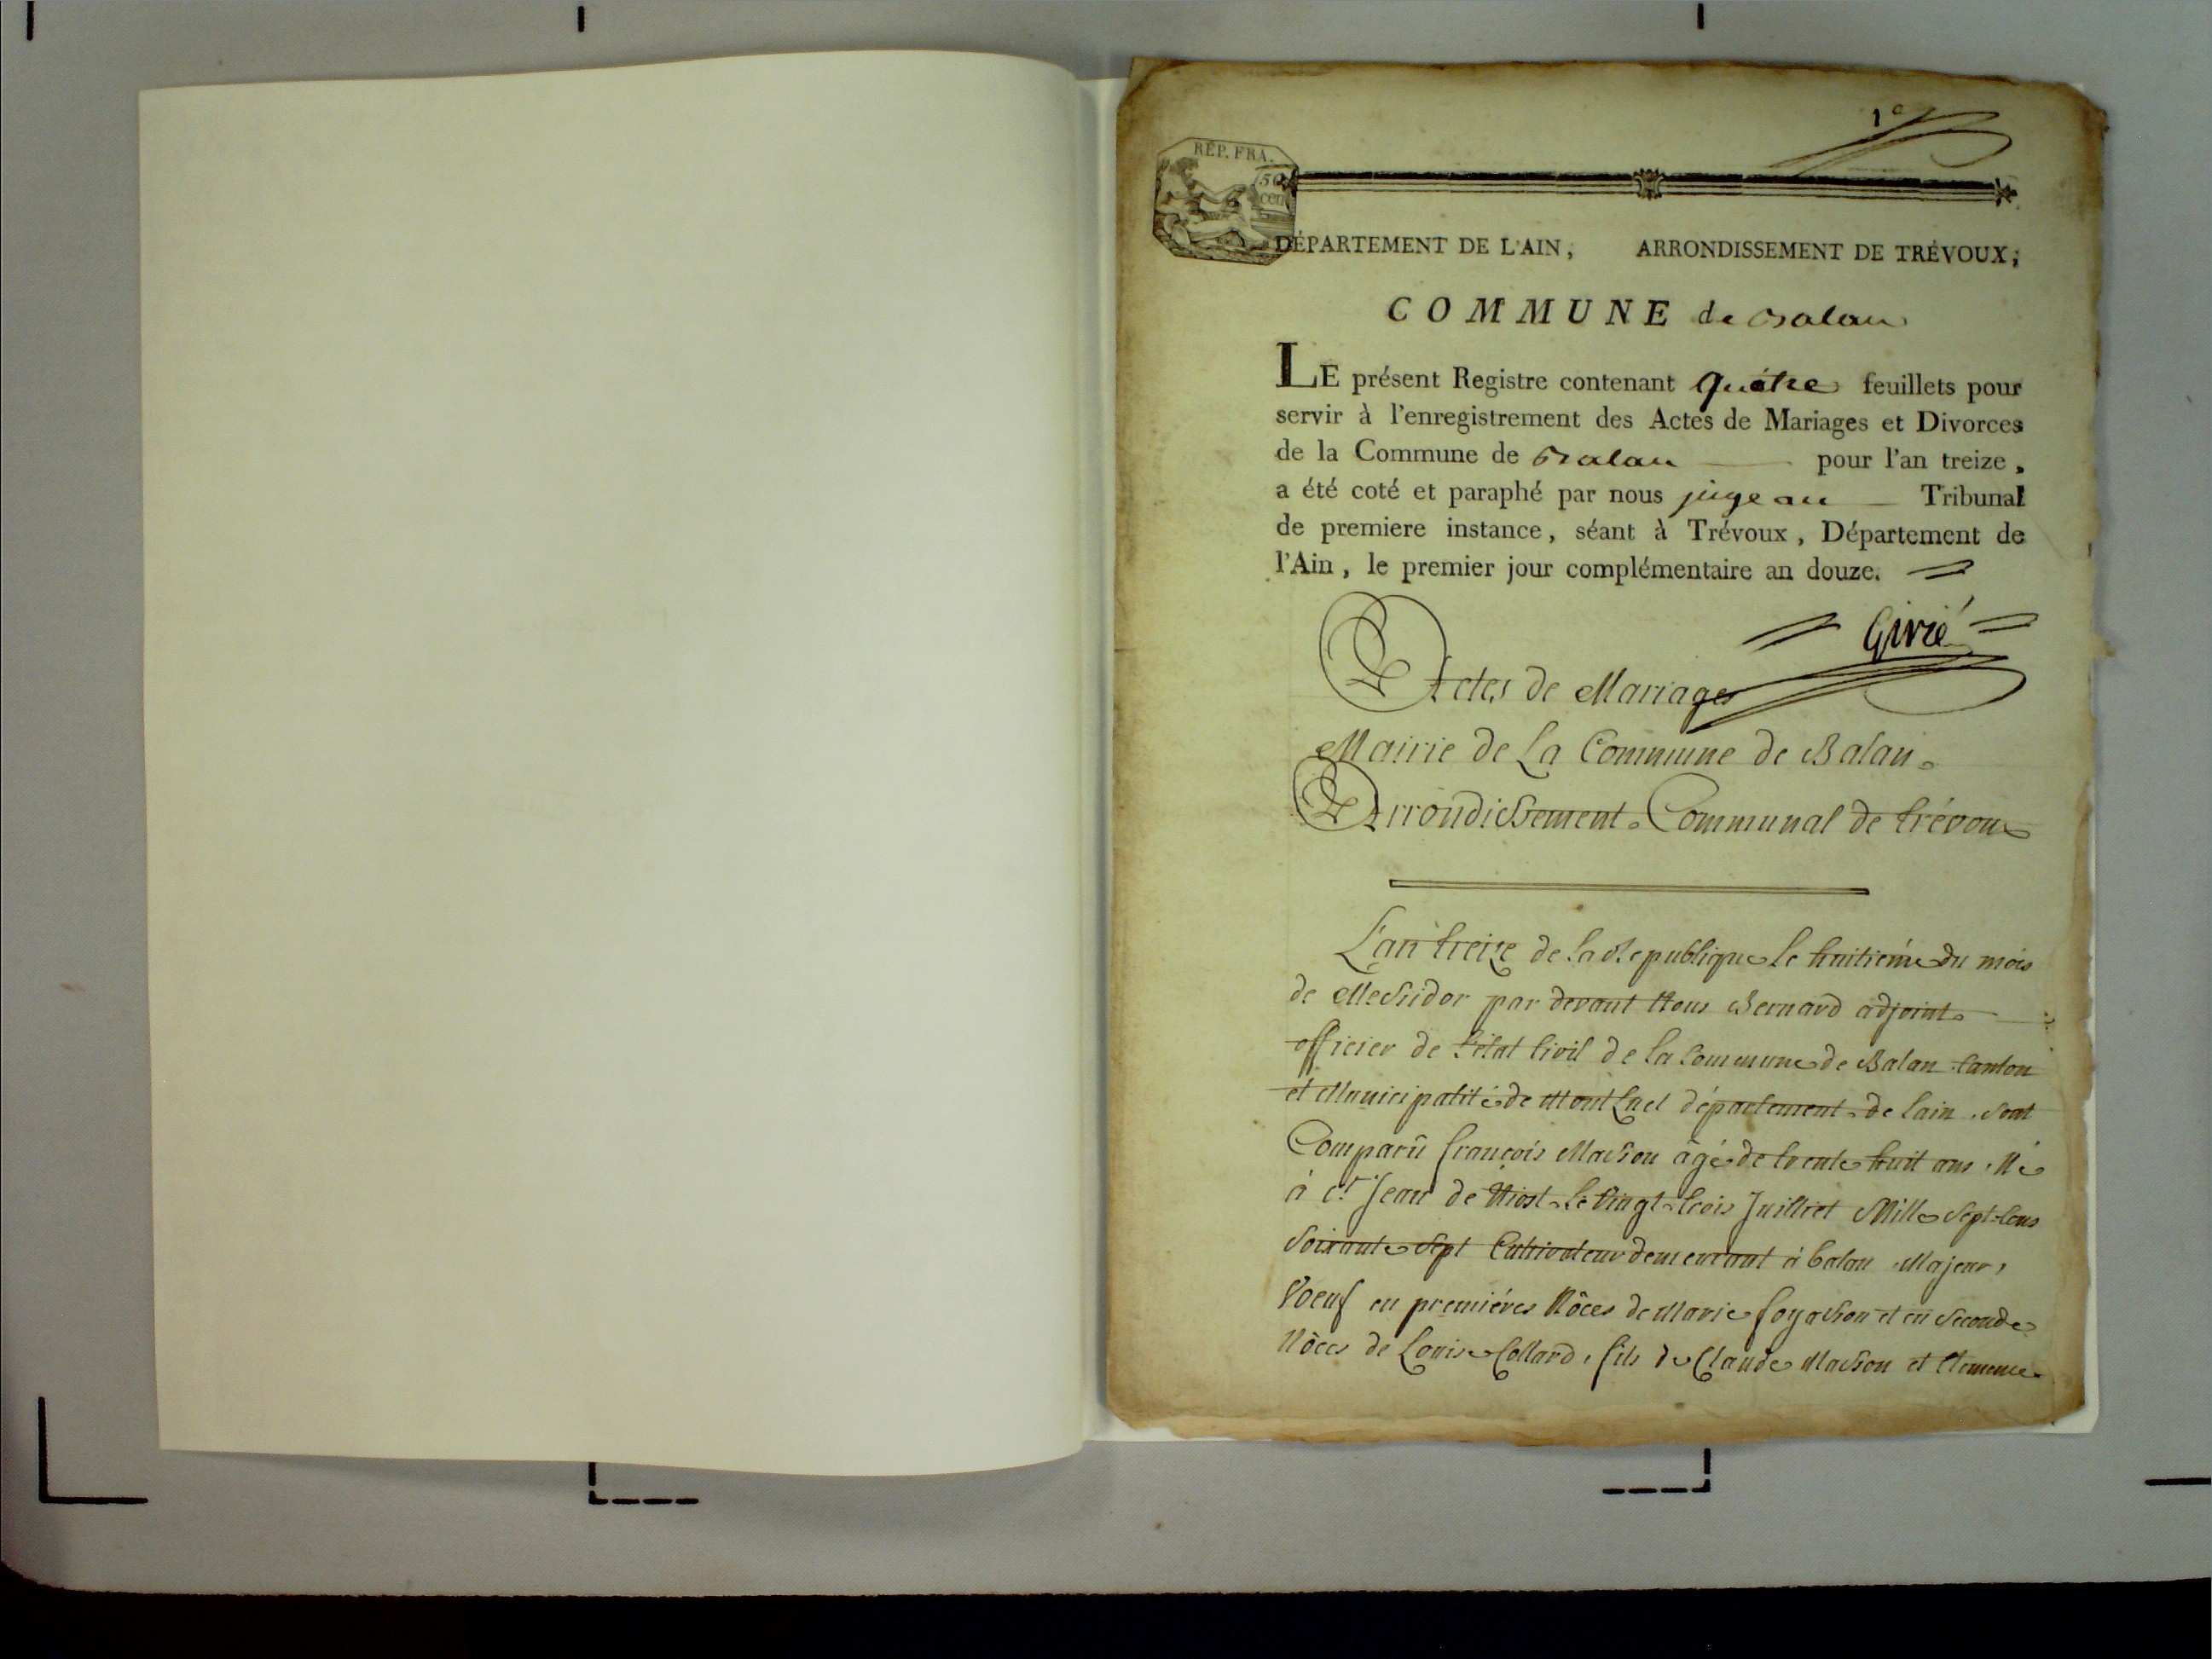 1e
RÉP. FRA.
50
cen
DÉPARTEMENT DE L'AIN, ARRONDISSEMENT DE TRÉVOUX,
COMMUNE de Balan
LE présent Registre contenant quatre feuillets pour
servir à l'enregistrement des Actes de Mariages et Divorces
de la Commune de Balan pour l'an treize,
a été coté et paraphé par nous juge au Tribunal
de premiere instance, séant à Trévoux, Département de
l'Ain, le premier jour complémentaire an douze.
Givré
Actes de Mariages
Mairie de La Commune de Balan.
Arrondissement Communal de trévoux
L'an treize de la Republique le huitiéme du mois
de Messidor par devant Nous Bernard adjoint
officier de l'état Civil de la Commune de Balan Canton
et Municipalité de Montluel département de lain, sont
Comparû françois Masson âgé de trente huit ans, Né
à St Jean de Niost le vingt trois Juilliet Mille Sept Cens
Soixante Sept Cultivateur demeurant à balan Majeur,
Voeuf en premiéres Nôces de Marie foyasson et en Seconde
Nôces de Louise Collard, fils de Claude Masson et Clemence